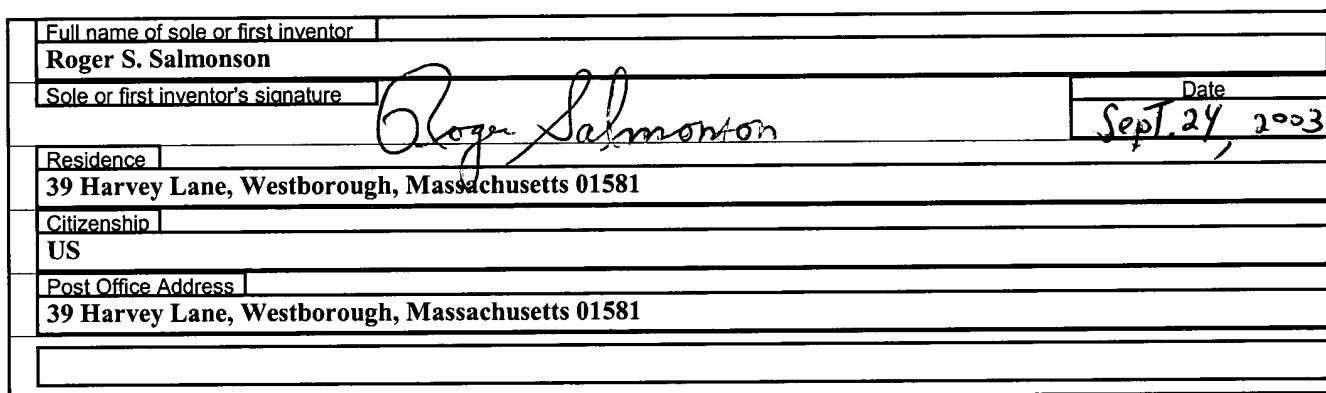 Full name of sole or first inventor
Roger S. Salmonson
Sole or first inventor's signature
Date
Roger Salmonson
Sept. 24, 2003
Residence
39 Harvey Lane, Westborough, Massachusetts 01581
Citizenship
US
Post Office Address
39 Harvey Lane, Westborough, Massachusetts 01581